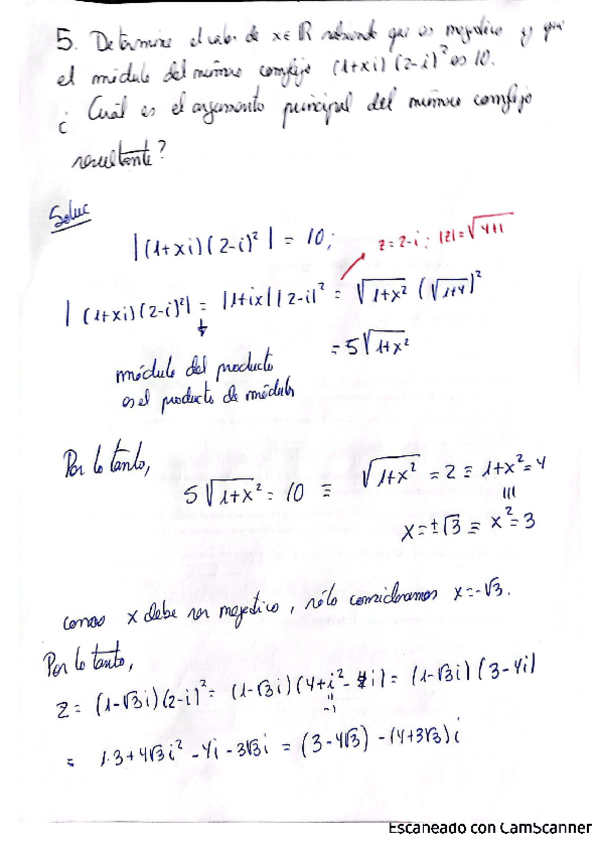 5. Determine el valor de x ∈ ℝ sabiendo que es negativo y que
el módulo del número complejo (1+xi)(2-i)² es 10.
¿ Cuál es el argumento principal del número complejo
resultante?
Soluc
|(1+xi)(2-i)²| = 10;
z=2-i ; |z|=√4+1
|(1+xi)(2-i)²| = |1+ix||2-i|² = √1+x² (√1+4)²
= 5√1+x²
módulo del producto
es el producto de módulos
Por lo tanto,
5√1+x² = 10 ≡ √1+x² = 2 ≡ 1+x²=4
|||
x=±√3 ≡ x²=3
como x debe ser negativo, sólo consideramos x=-√3.
Por lo tanto,
z = (1-√3i)(2-i)² = (1-√3i)(4+i²-4i) = (1-√3i)(3-4i)
"
-1
= 1·3+4√3i² -4i-3√3i = (3-4√3) - (4+3√3)i
Escaneado con CamScanner